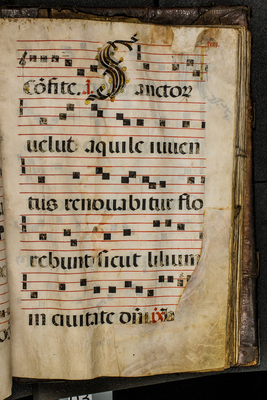 Cõfite. i. Sanctor
uelut aquile iuuen
tus renouabitur flo
rebunt sicut lilium
in ciuitate dñi.